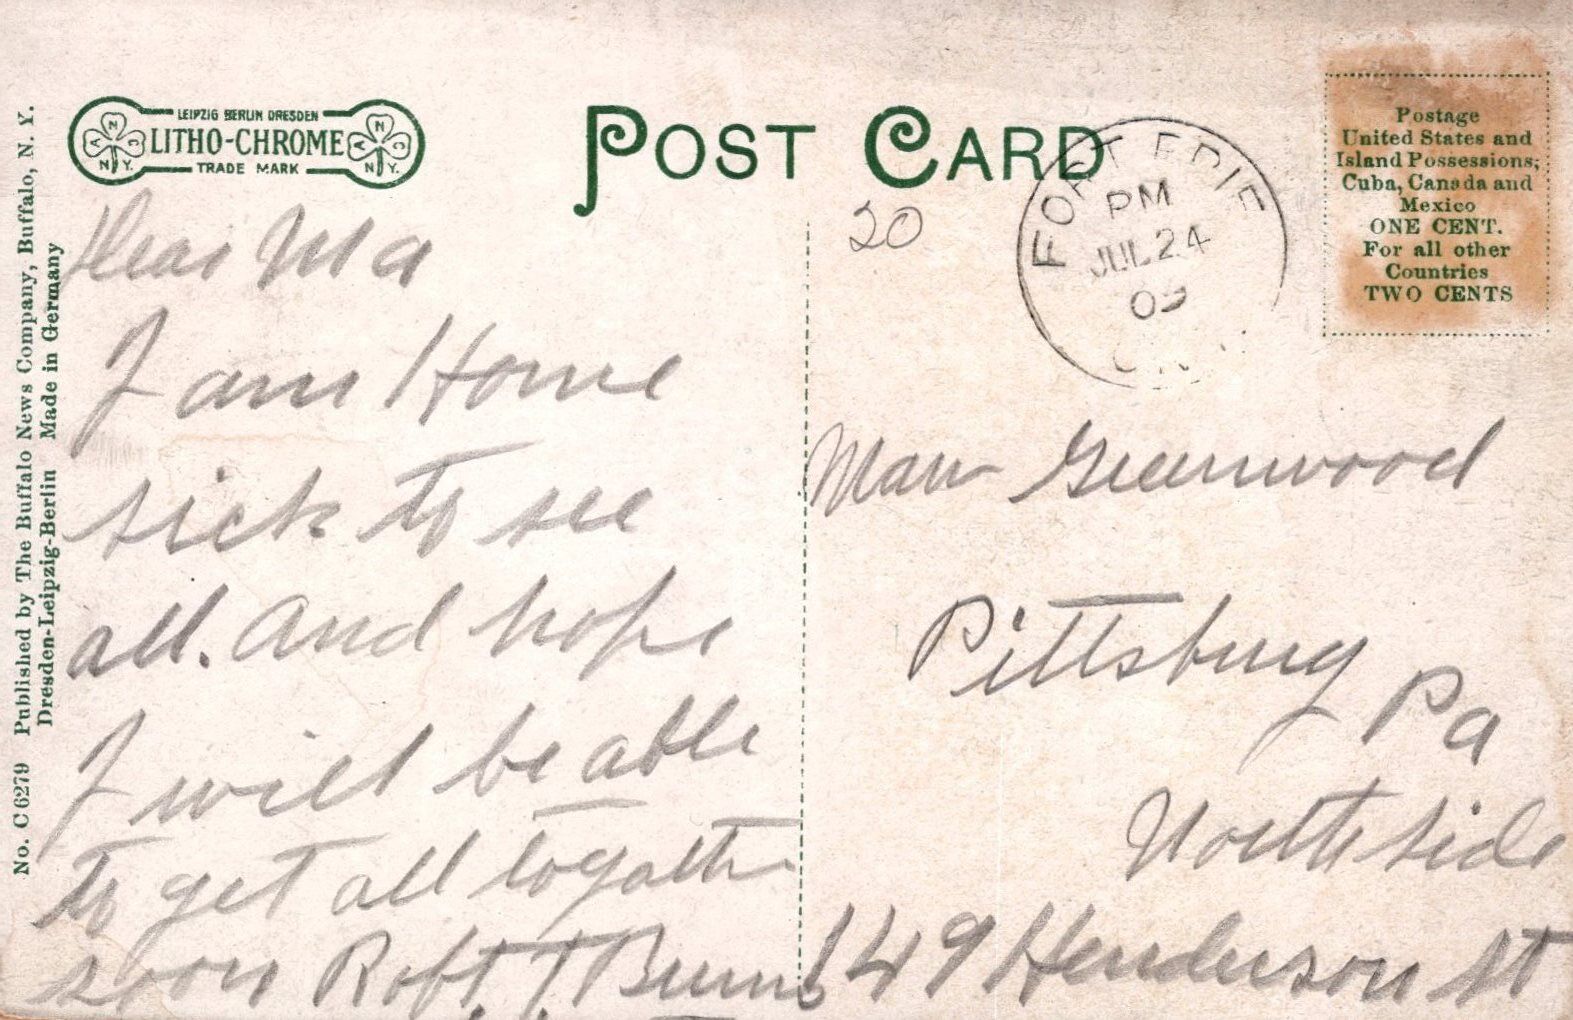 No. C 6279 Published by The Buffalo News Company, Buffalo, N. Y.
Dresden-Leipzig-Berlin Made in Germany
LEIPZIG BERLIN DRESDEN
LITHO-CHROME
TRADE MARK
N.Y.
N.Y.
POST CARD
20
FORT ERIE
PM
JUL 24
09
ONT
Postage
United States and
Island Possessions;
Cuba, Canada and
Mexico
ONE CENT.
For all other
Countries
TWO CENTS
Dear Ma
I am Home
sick to see
all. And hope
I will be able
to get all togather
soon Robt. T. Burns
Greenwood
Pittsburg
Pa
North side
149 Henderson St